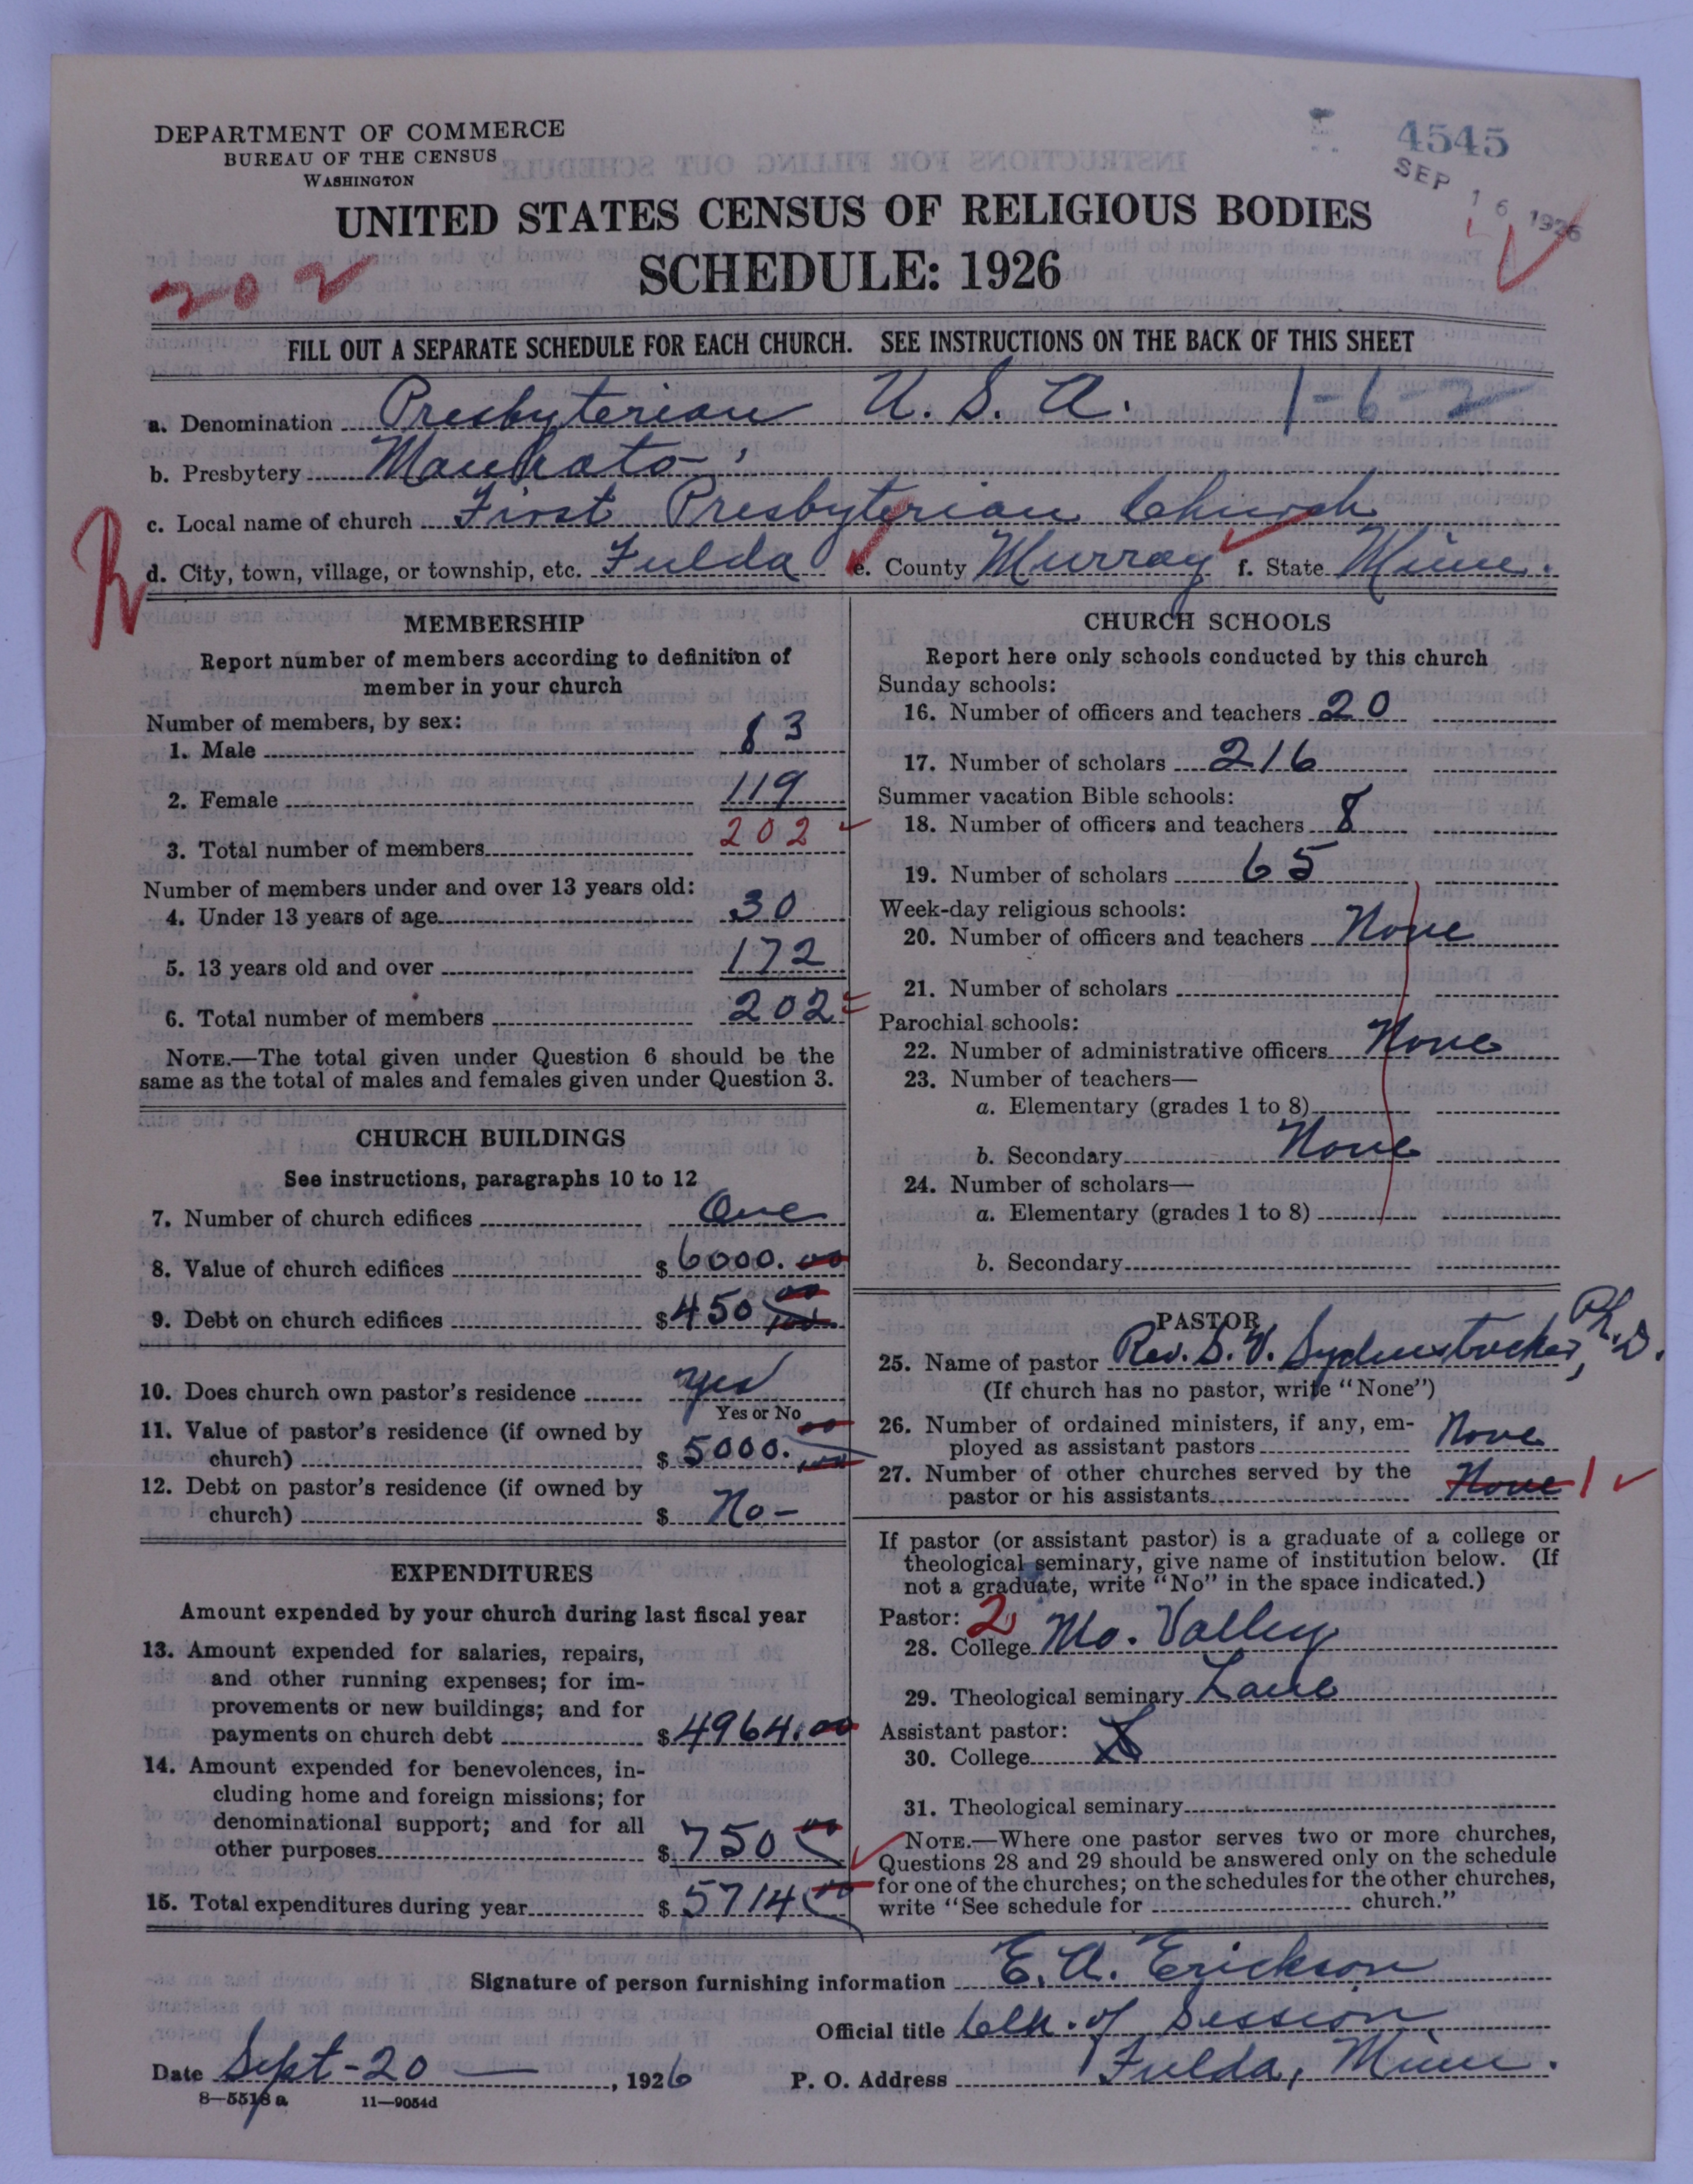 DEPARTMENT OF COMMERCE
BUREAU OF THE CENSUS
WASHINGTON
4545
SEP 16 1926
UNITED STATES CENSUS OF RELIGIOUS BODIES
SCHEDULE: 1926
202
FILL OUT A SEPARATE SCHEDULE FOR EACH CHURCH. SEE INSTRUCTIONS ON THE BACK OF THIS SHEET
a. Denomination Presbyterian U. S. A. 1-6-2
b. Presbytery Mankato
c. Local name of church First Presbyterian Church
d. City, town, village, or township, etc. Fulda e. County Murray f. State Minn.
MEMBERSHIP
Report number of members according to definition of
member in your church
Number of members, by sex:
1. Male 83
2. Female 119
3. Total number of members 202
Number of members under and over 13 years old:
4. Under 13 years of age 30
5. 13 years old and over 172
6. Total number of members 202
NOTE.—The total given under Question 6 should be the
same as the total of males and females given under Question 3.
CHURCH BUILDINGS
See instructions, paragraphs 10 to 12
7. Number of church edifices One
8. Value of church edifices $ 6000.00
9. Debt on church edifices $ 450 00
10. Does church own pastor's residence yes
Yes or No
11. Value of pastor's residence (if owned by
church) $ 5000.00
12. Debt on pastor's residence (if owned by
church) $ No-
EXPENDITURES
Amount expended by your church during last fiscal year
13. Amount expended for salaries, repairs,
and other running expenses; for im-
provements or new buildings; and for
payments on church debt $ 4964.00
14. Amount expended for benevolences, in-
cluding home and foreign missions; for
denominational support; and for all
other purposes $ 750 00
15. Total expenditures during year $ 5714 00
CHURCH SCHOOLS
Report here only schools conducted by this church
Sunday schools:
16. Number of officers and teachers 20
17. Number of scholars 216
Summer vacation Bible schools:
18. Number of officers and teachers 8
19. Number of scholars 65
Week-day religious schools:
20. Number of officers and teachers None
21. Number of scholars
Parochial schools:
22. Number of administrative officers None
23. Number of teachers—
a. Elementary (grades 1 to 8)
b. Secondary None
24. Number of scholars—
a. Elementary (grades 1 to 8)
b. Secondary
PASTOR
25. Name of pastor Rev. S. V. Sydenstricker, Ph. D.
(If church has no pastor, write "None")
26. Number of ordained ministers, if any, em-
ployed as assistant pastors None
27. Number of other churches served by the
pastor or his assistants None 1
If pastor (or assistant pastor) is a graduate of a college or
theological seminary, give name of institution below. (If
not a graduate, write "No" in the space indicated.)
Pastor: 2
28. College Mo. Valley
29. Theological seminary Lane
Assistant pastor:
30. College
31. Theological seminary
NOTE.—Where one pastor serves two or more churches,
Questions 28 and 29 should be answered only on the schedule
for one of the churches; on the schedules for the other churches,
write "See schedule for church."
Signature of person furnishing information E. A. Erickson
Official title Clk. of Session
Date Sept-20 , 1926 P. O. Address Fulda, Minn.
8—5518 a 11—9054d